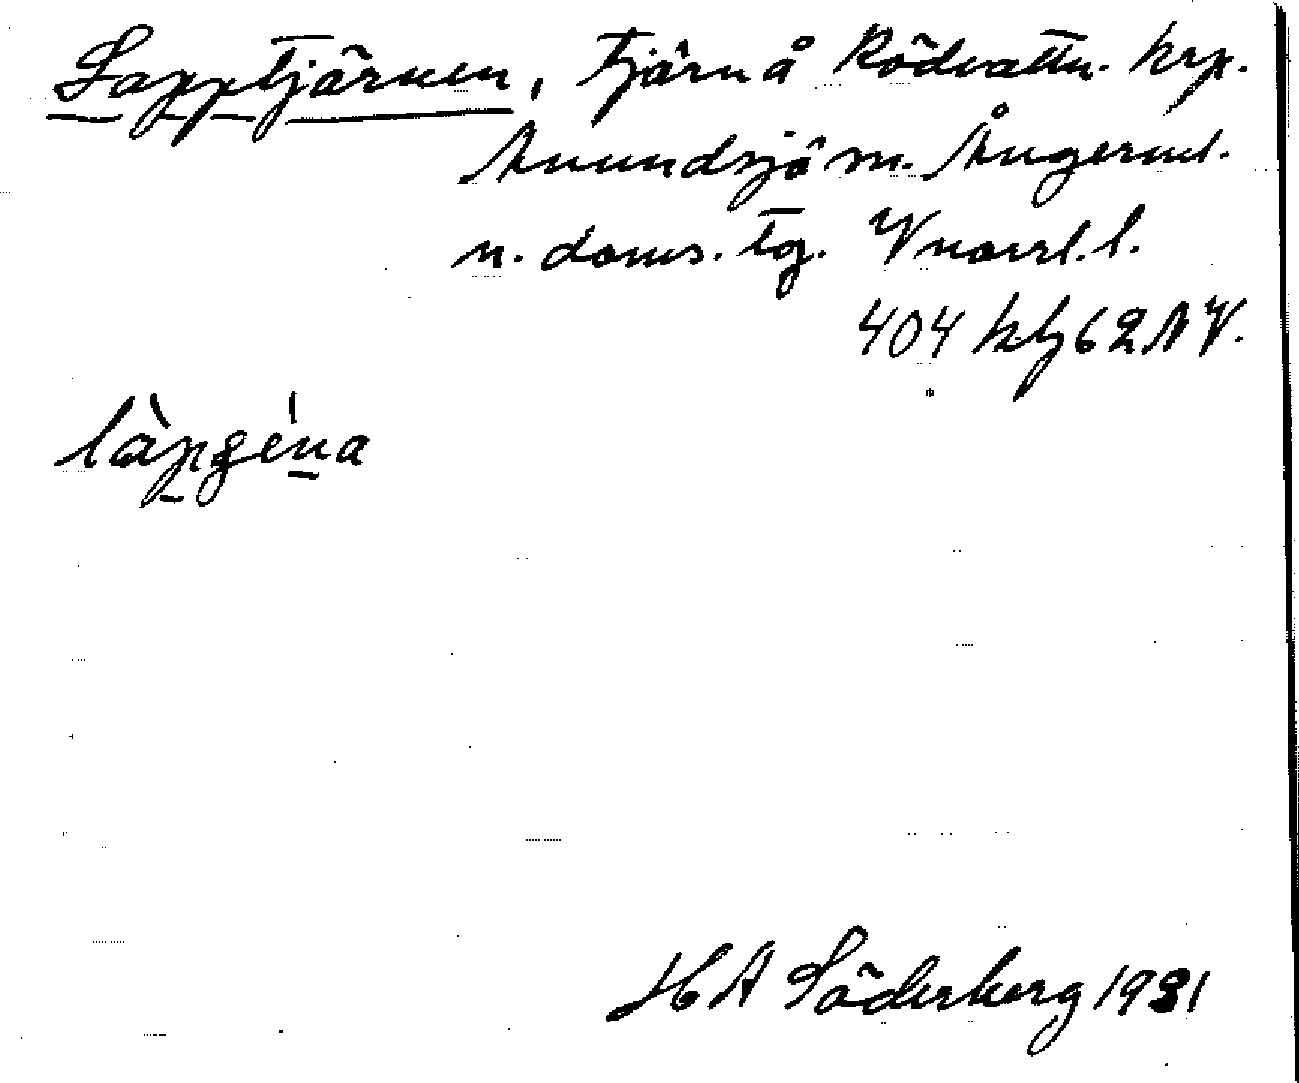 Lapptjärnen, Tjärn å Rödvattn. krp.
Anundsjö sn. Ångerml.
n. doms. tg. Vnorrl. l.
404 62 NV.
H A Söderberg 1931